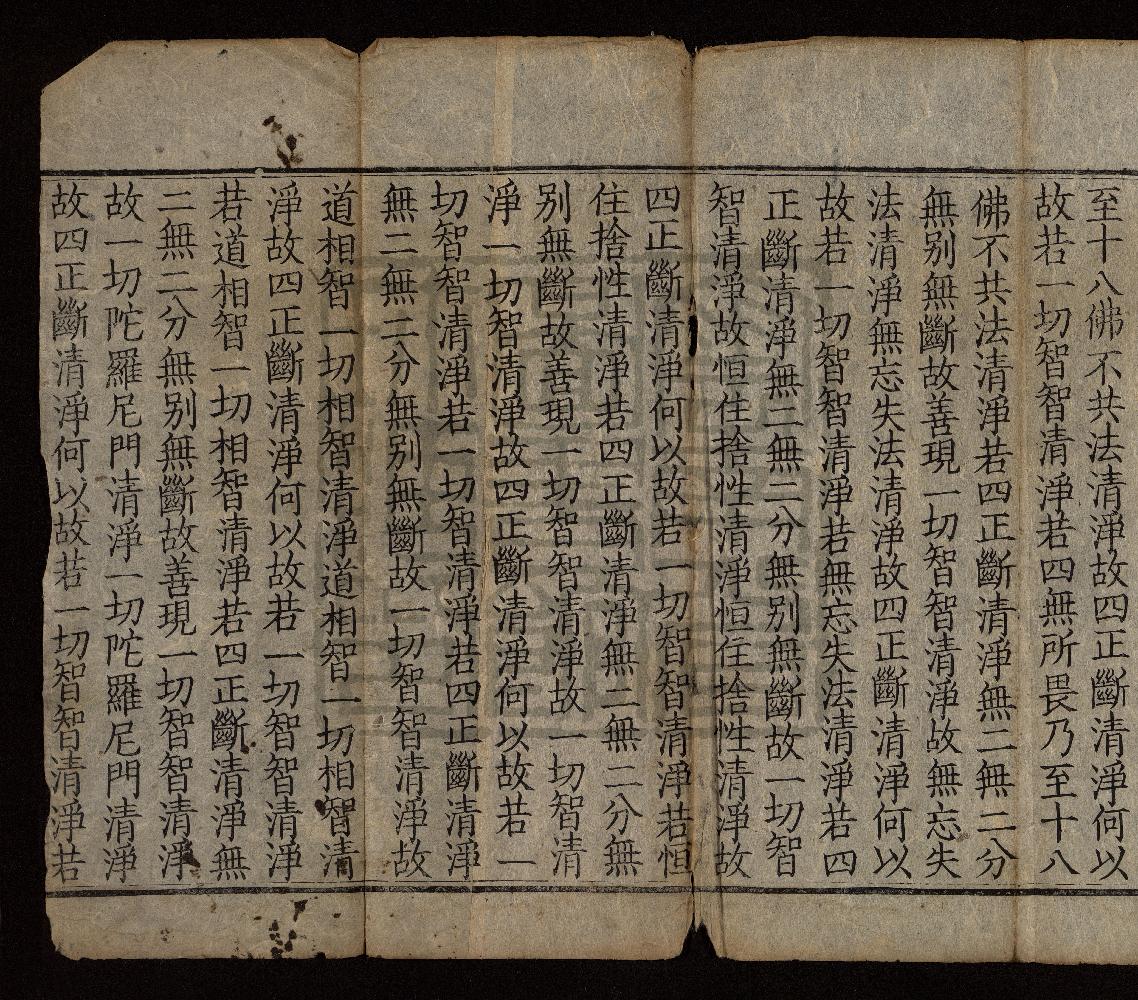 至十八佛不共法清淨故四正斷清淨何以
故若一切智智清淨若四無所畏乃至十八
佛不共法清淨若四正斷清淨無二無二分
無别無斷故善現一切智智清淨故無忘失
法清淨無忘失法清淨故四正斷清淨何以
故若一切智智清淨若無忘失法清淨若四
正斷清淨無二無二分無别無斷故一切智
智清淨故恒住捨性清淨恒住捨性清淨故
四正斷清淨何以故若一切智智清淨若恒
住捨性清淨若四正斷清淨無二無二分無
别無斷故善現一切智智清淨故一切智清
淨一切智清淨故四正斷清淨何以故若一
切智智清淨若一切智清淨若四正斷清淨
無二無二分無别無斷故一切智智清淨故
道相智一切相智清淨道相智一切相智清
淨故四正斷清淨何以故若一切智智清淨
若道相智一切相智清淨若四正斷清淨無
二無二分無别無斷故善現一切智智清淨
故一切陀羅尼門清淨一切陀羅尼門清淨
故四正斷清淨何以故若一切智智清淨若